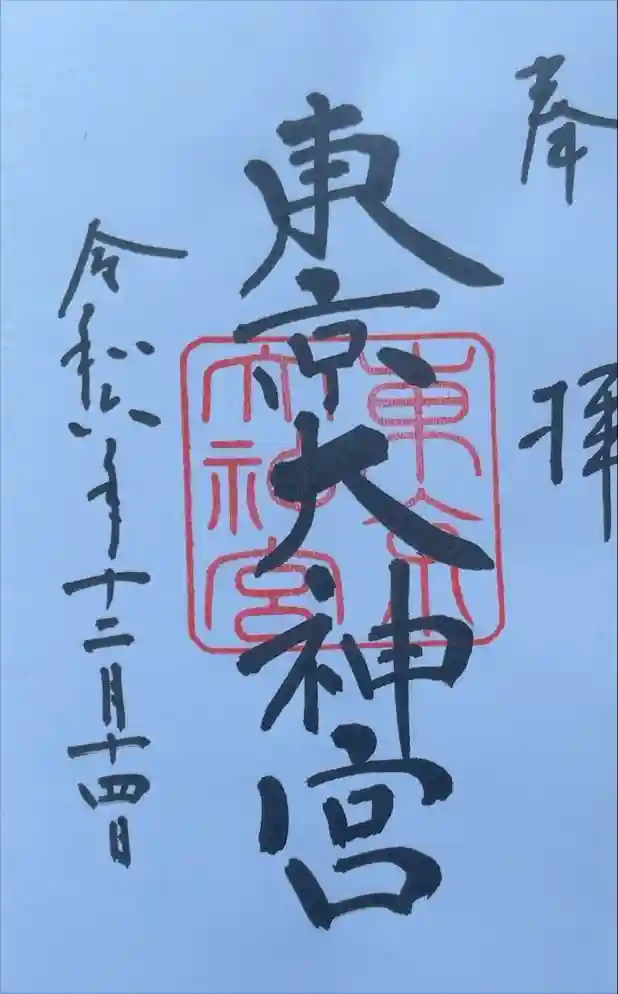 奉拝
東京大神宮
東京大神宮
令和六年十二月十四日